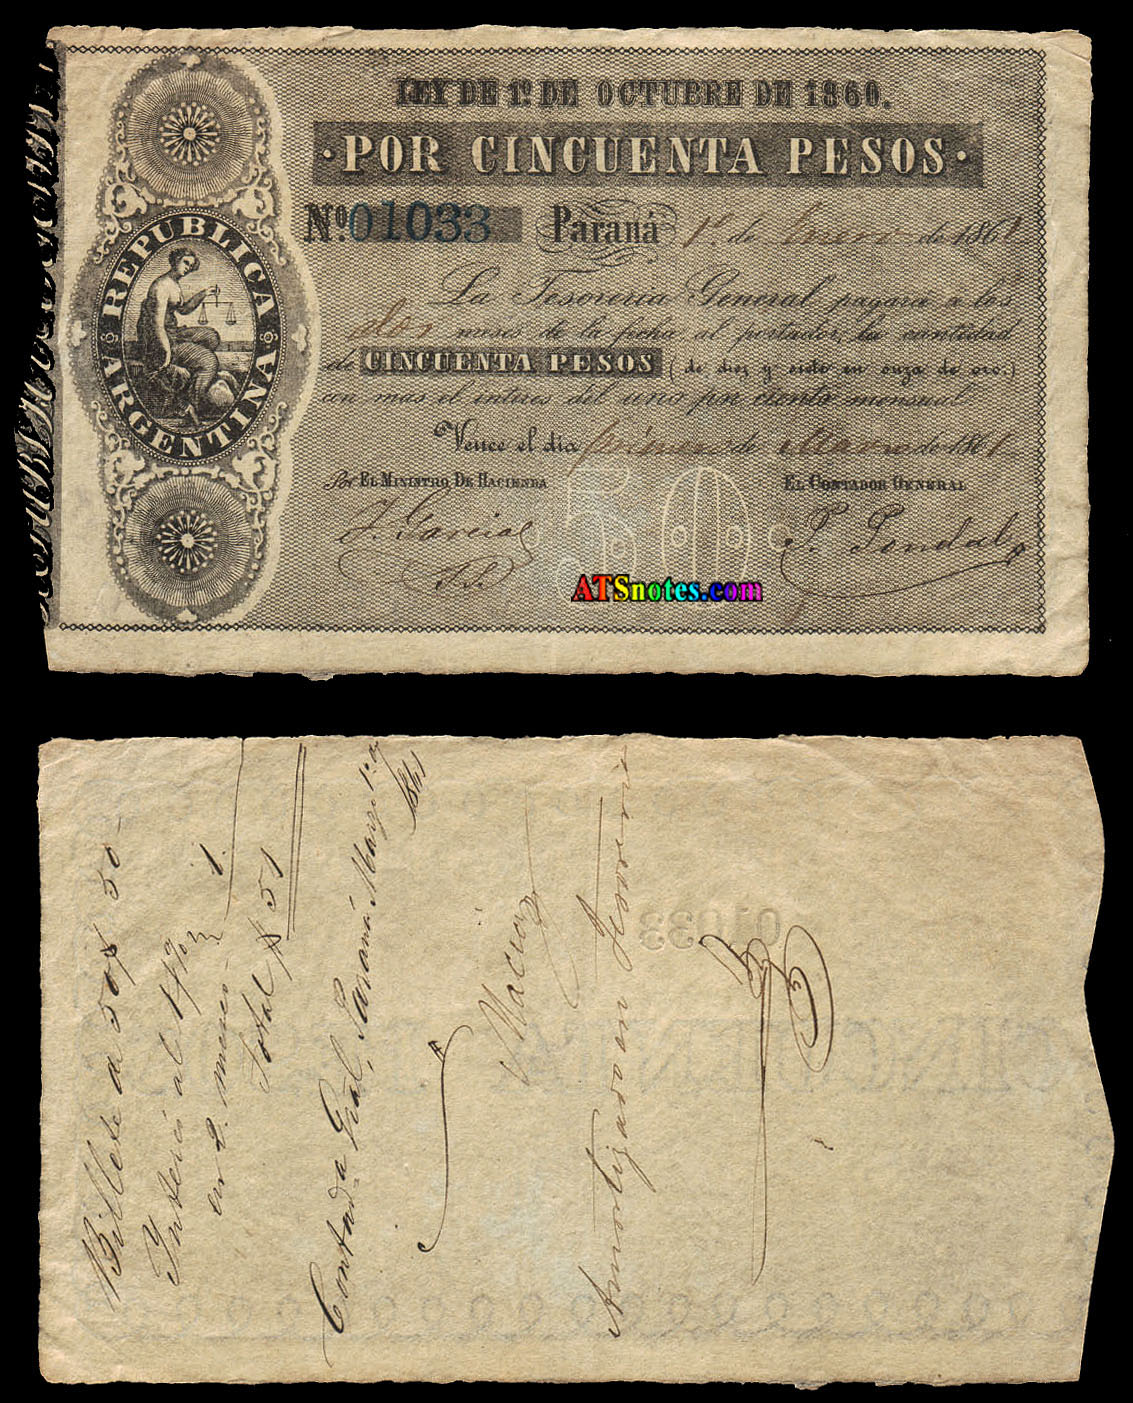 LEY DE 1º DE OCTUBRE DE 1860.
·POR CINCUENTA PESOS·
Nº 01033 Paraná 1º de Enero de 1861
La Tesoreria General pagará a los
dos meses de la fecha, al portador, la cantidad
de CINCUENTA PESOS (de diez y siete en onza de oro.)
con mas el interes del uno por ciento mensual.
Vence el dia primero de Marzo de 1861
Por EL MINISTRO DE HACIENDA EL CONTADOR GENERAL
J. Garcia
REPUBLICA ARGENTINA
50
ATSnotes.com
Billete de 50 $ 50
Interes al 1 p%
en 2. meses 1.
Total $ 51
Contada Gral, Paraná Marzo 1º de
1861
Amortizado en Tesoreria
01033